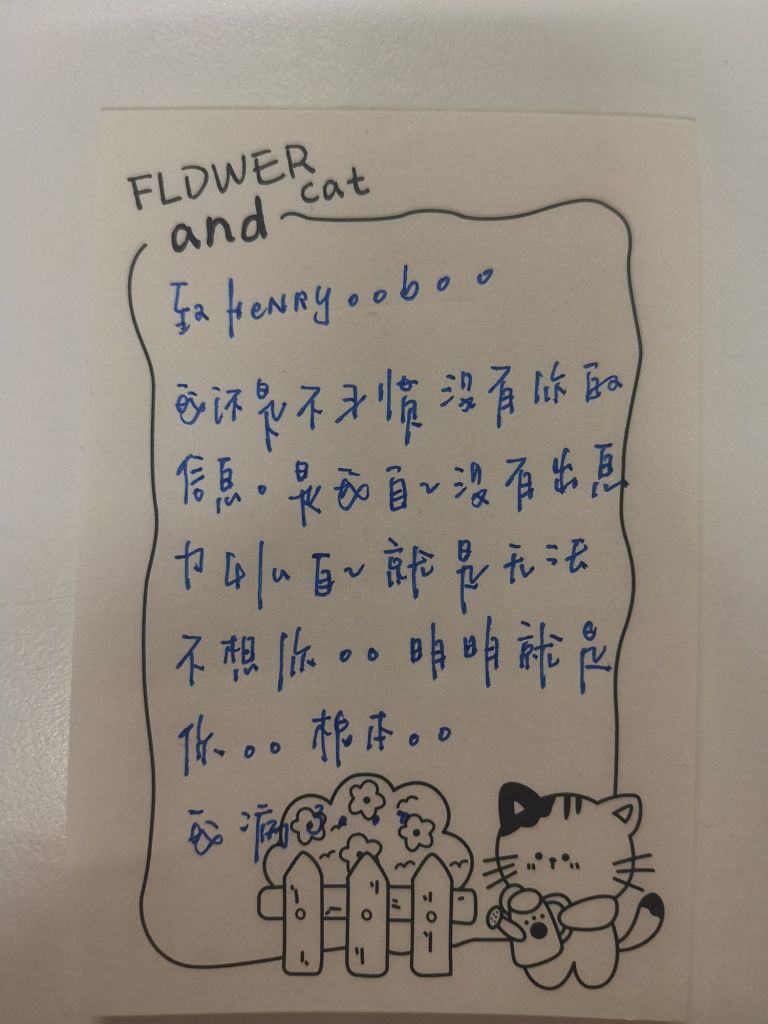 FLOWER
cat
and
致 HeNRY。。b。。
我还是不习惯没有你的
信息。是我自己没有出息
自己就是无法
不想你。。明明就是
你。。根本。。
我病了。。。